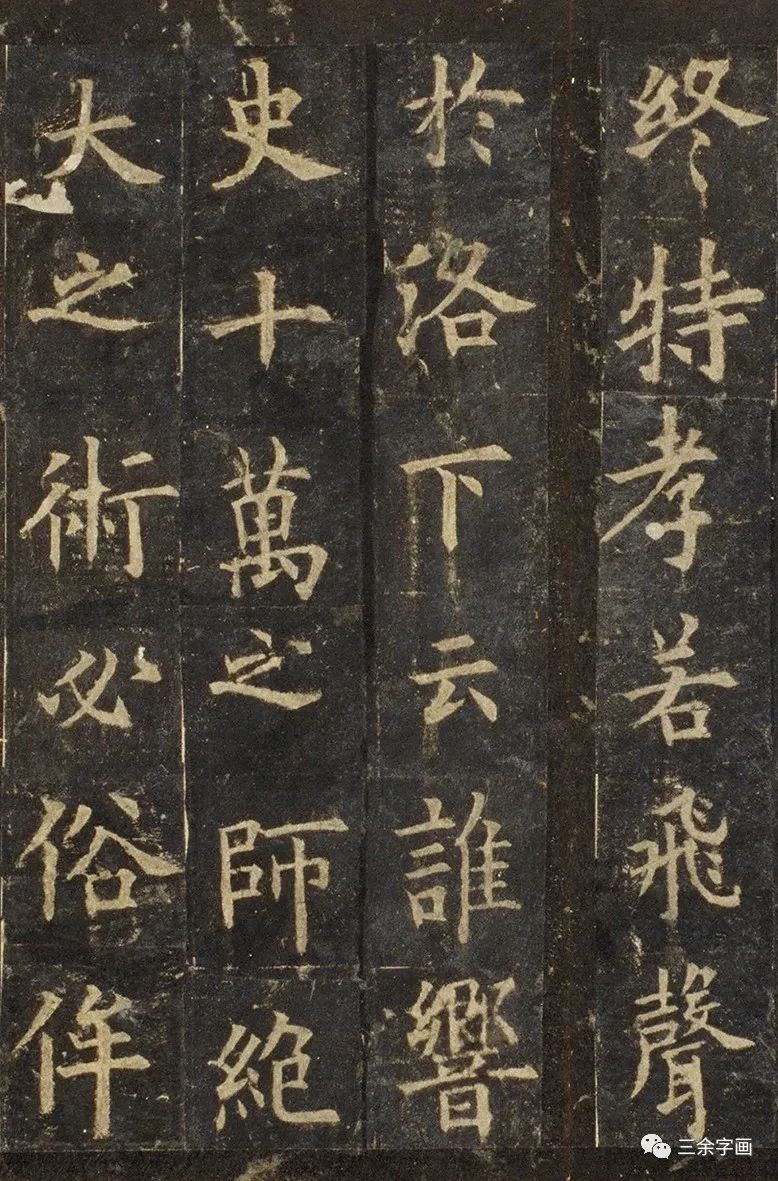 終特孝若飛聲
於洛下云誰響
史十萬之師絶
大之術必俗侔
三余字画